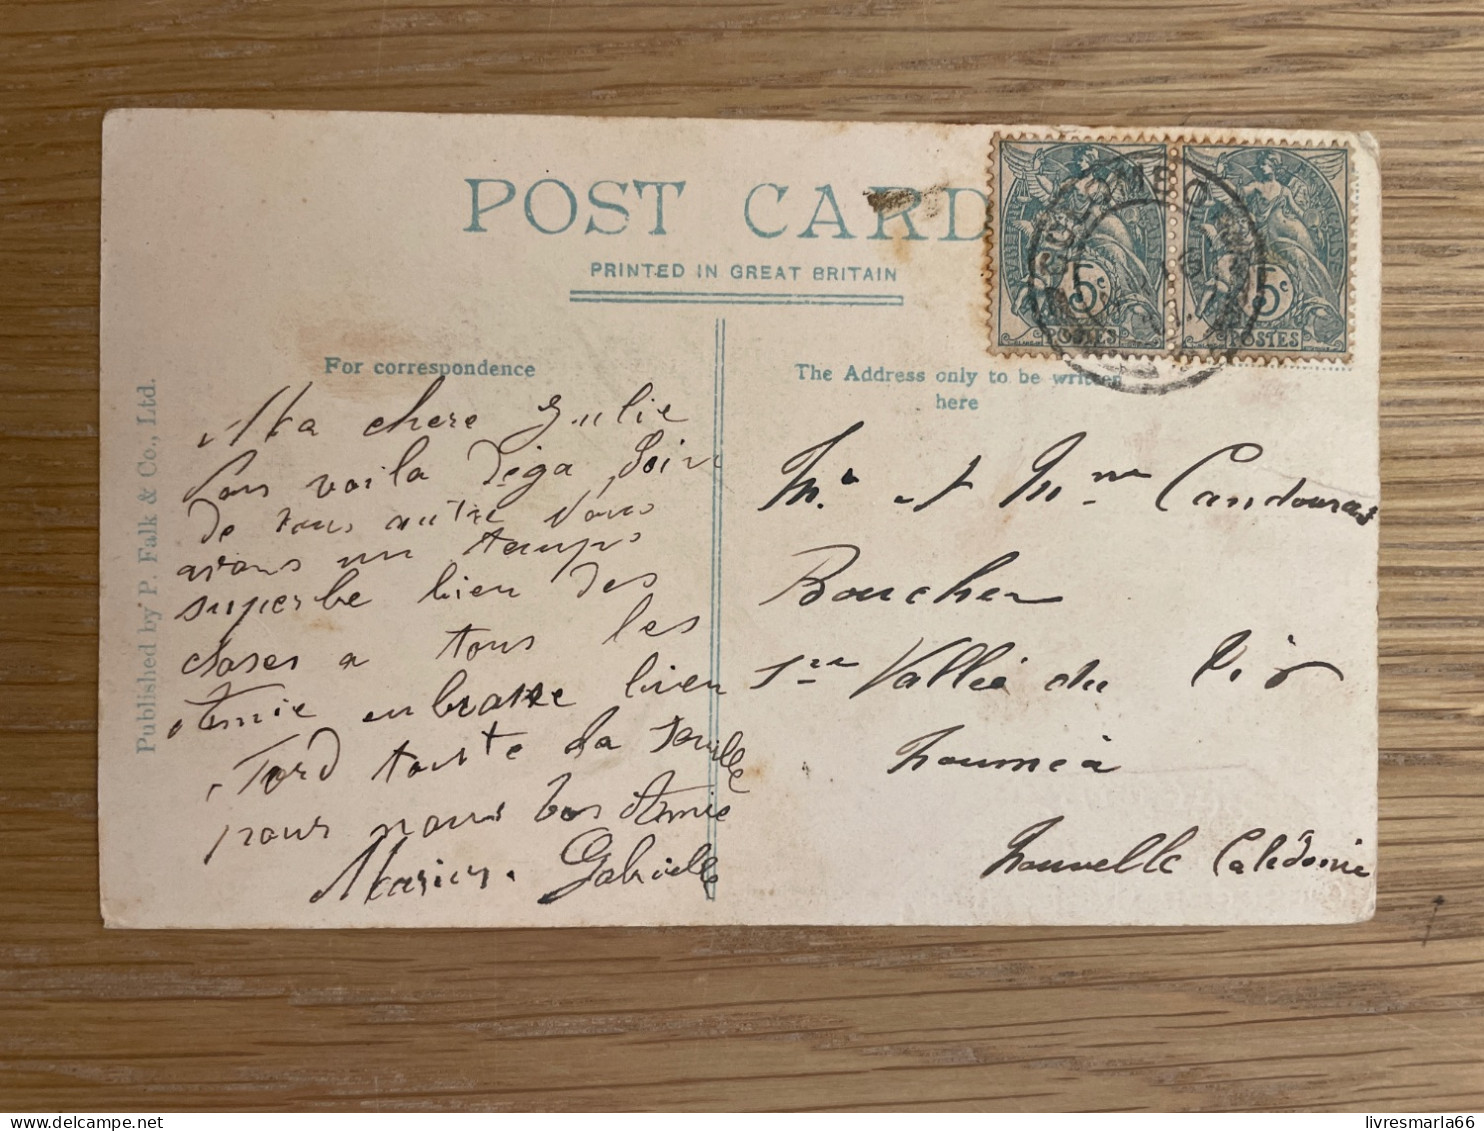 POST CARD
PRINTED IN GREAT BRITAIN
For correspondence
The Address only to be written
here
Published by P. Falk & Co., Ltd.
COLOMBO
5c
POSTES
5c
POSTES
Ma chere Julie
vous voila déga loin
de nous autre nous
avons un temps
superbe bien des
choses a tous les
Amie enbrasse bien
Ford toute la famille
pour nous vos Amie
Marius. Gabrielle
Mr et Mme Candouras
Boucher
1re Vallée du Tir
Nouméa
Nouvelle Calédonie
livresmarla66